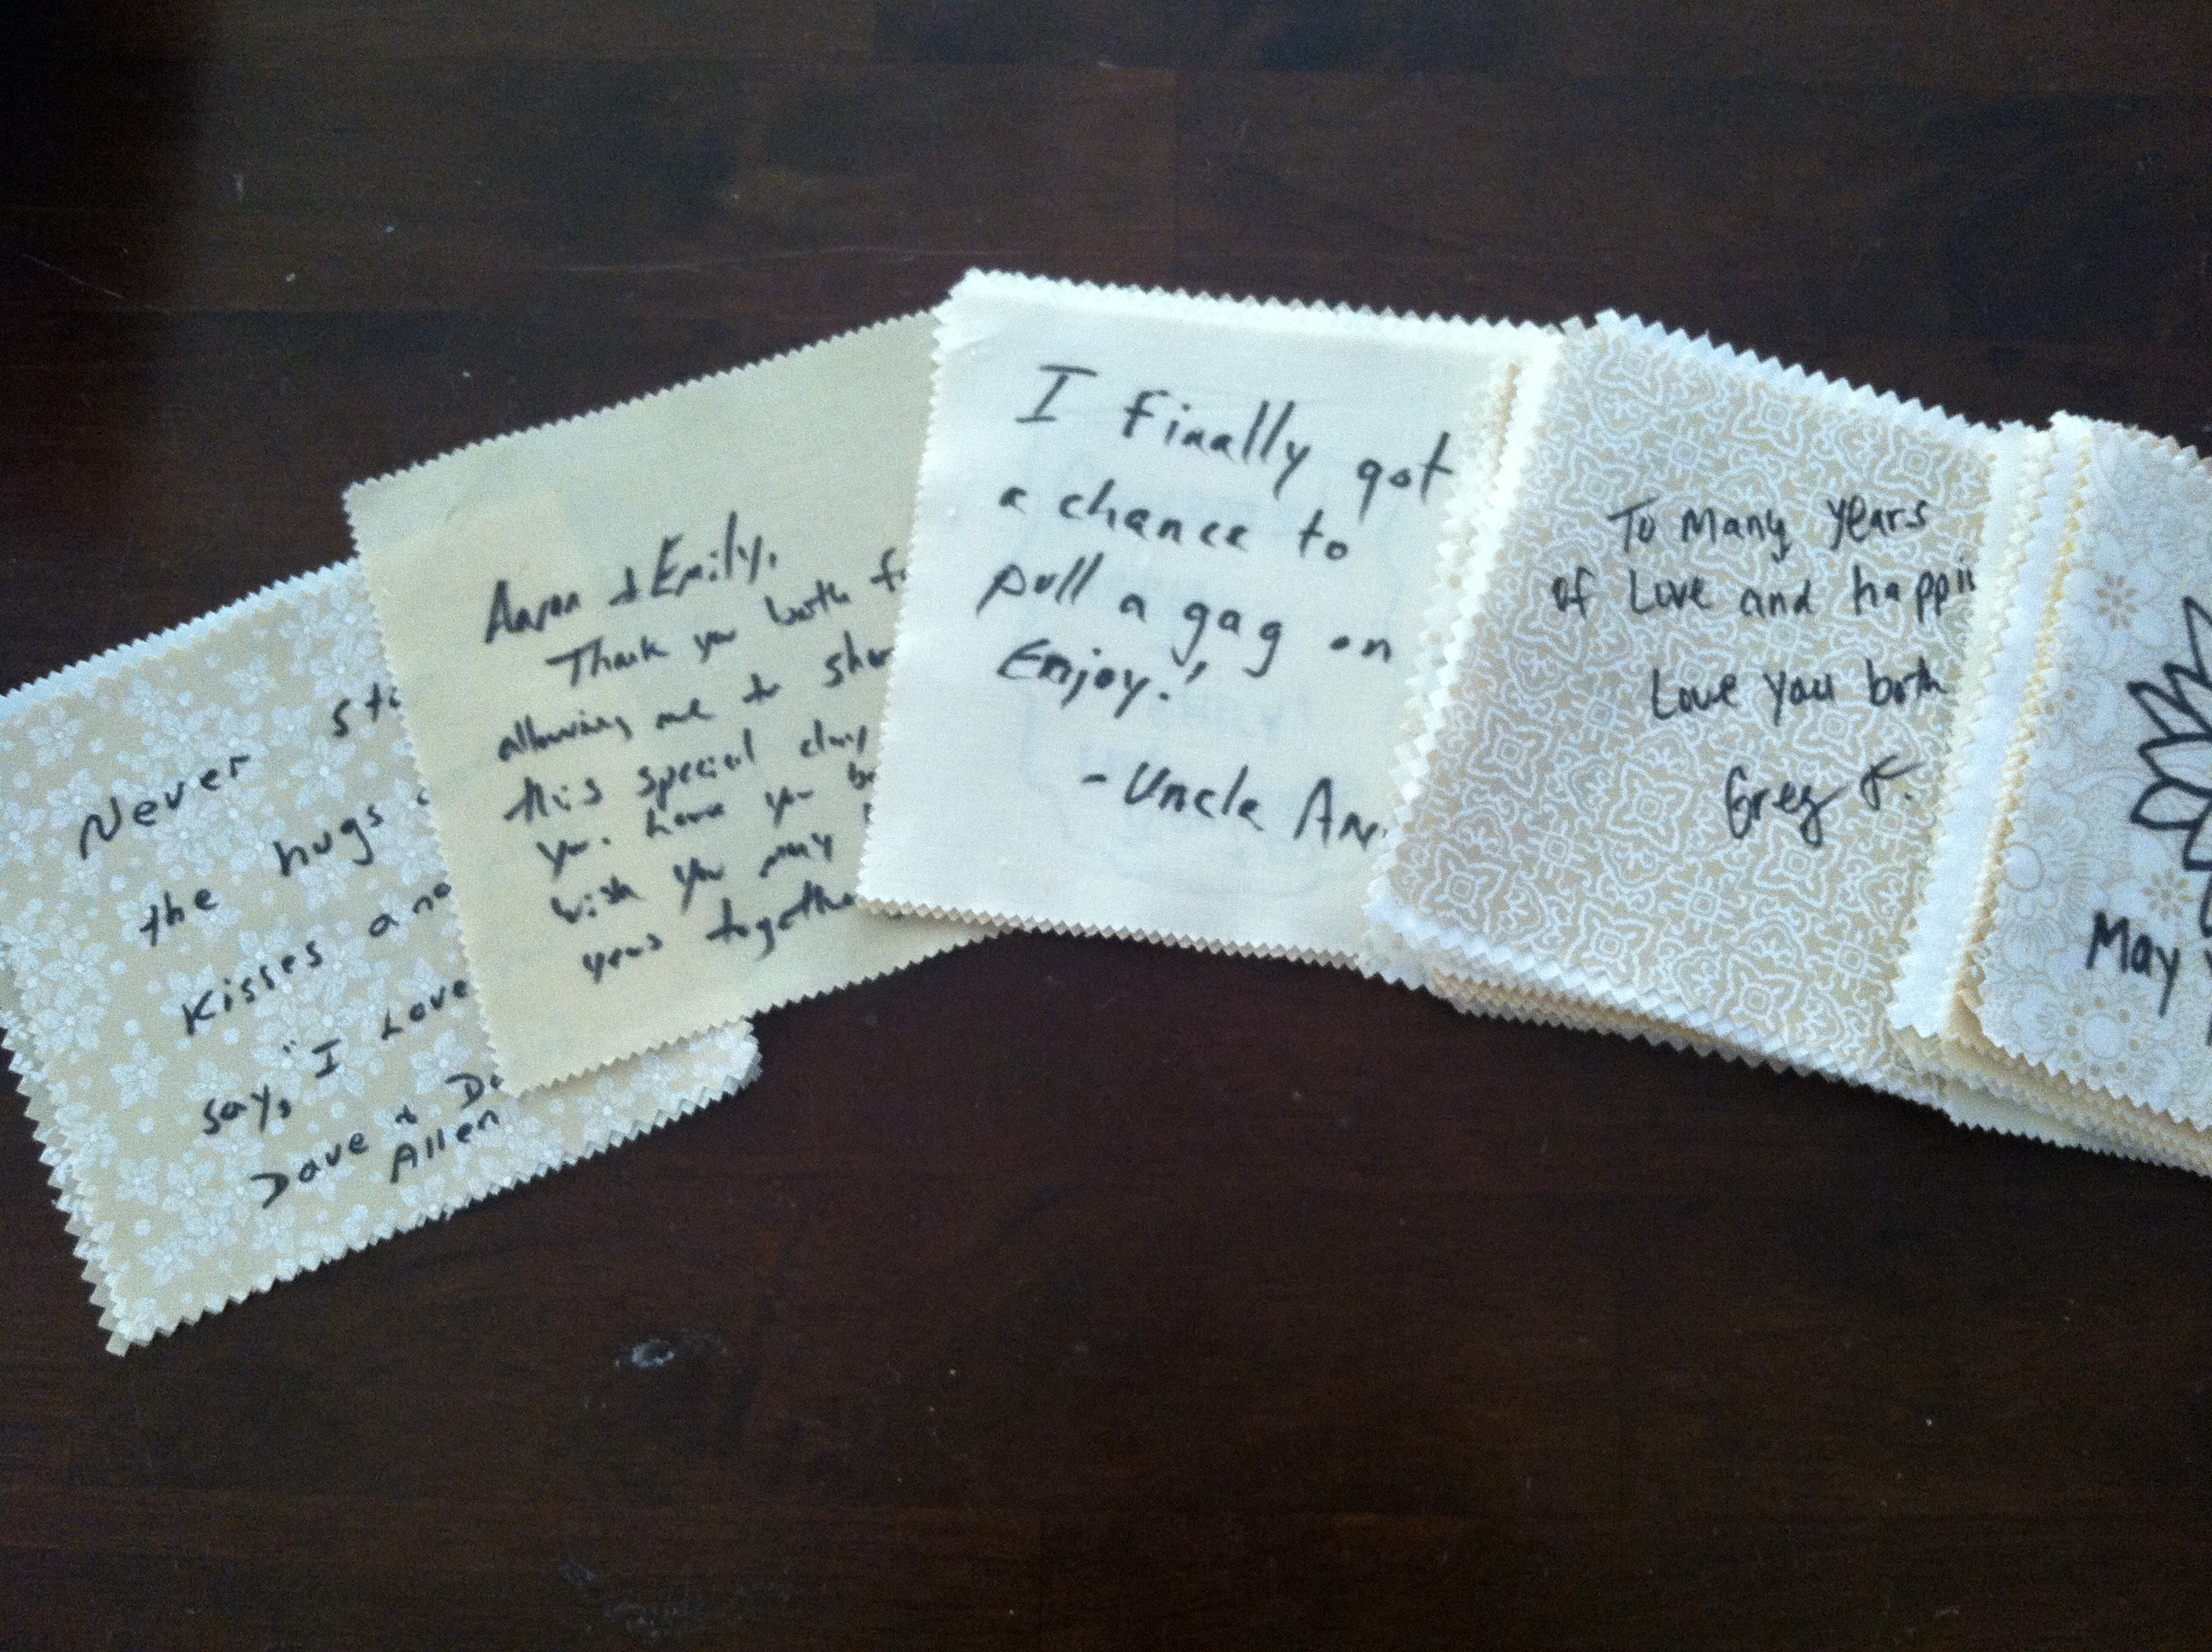 Never
the hugs
Kisses and
say, "I Love
Dave & D
Allen
Aaron & Emily,
Thank you both f
allowing me to shar
this special day
you. Love you b
wish you many
years together
I Finally got
a chance to
pull a gag on
Enjoy!
-Uncle
To Many years
of Love and happi
Love you both
Greg F.
May